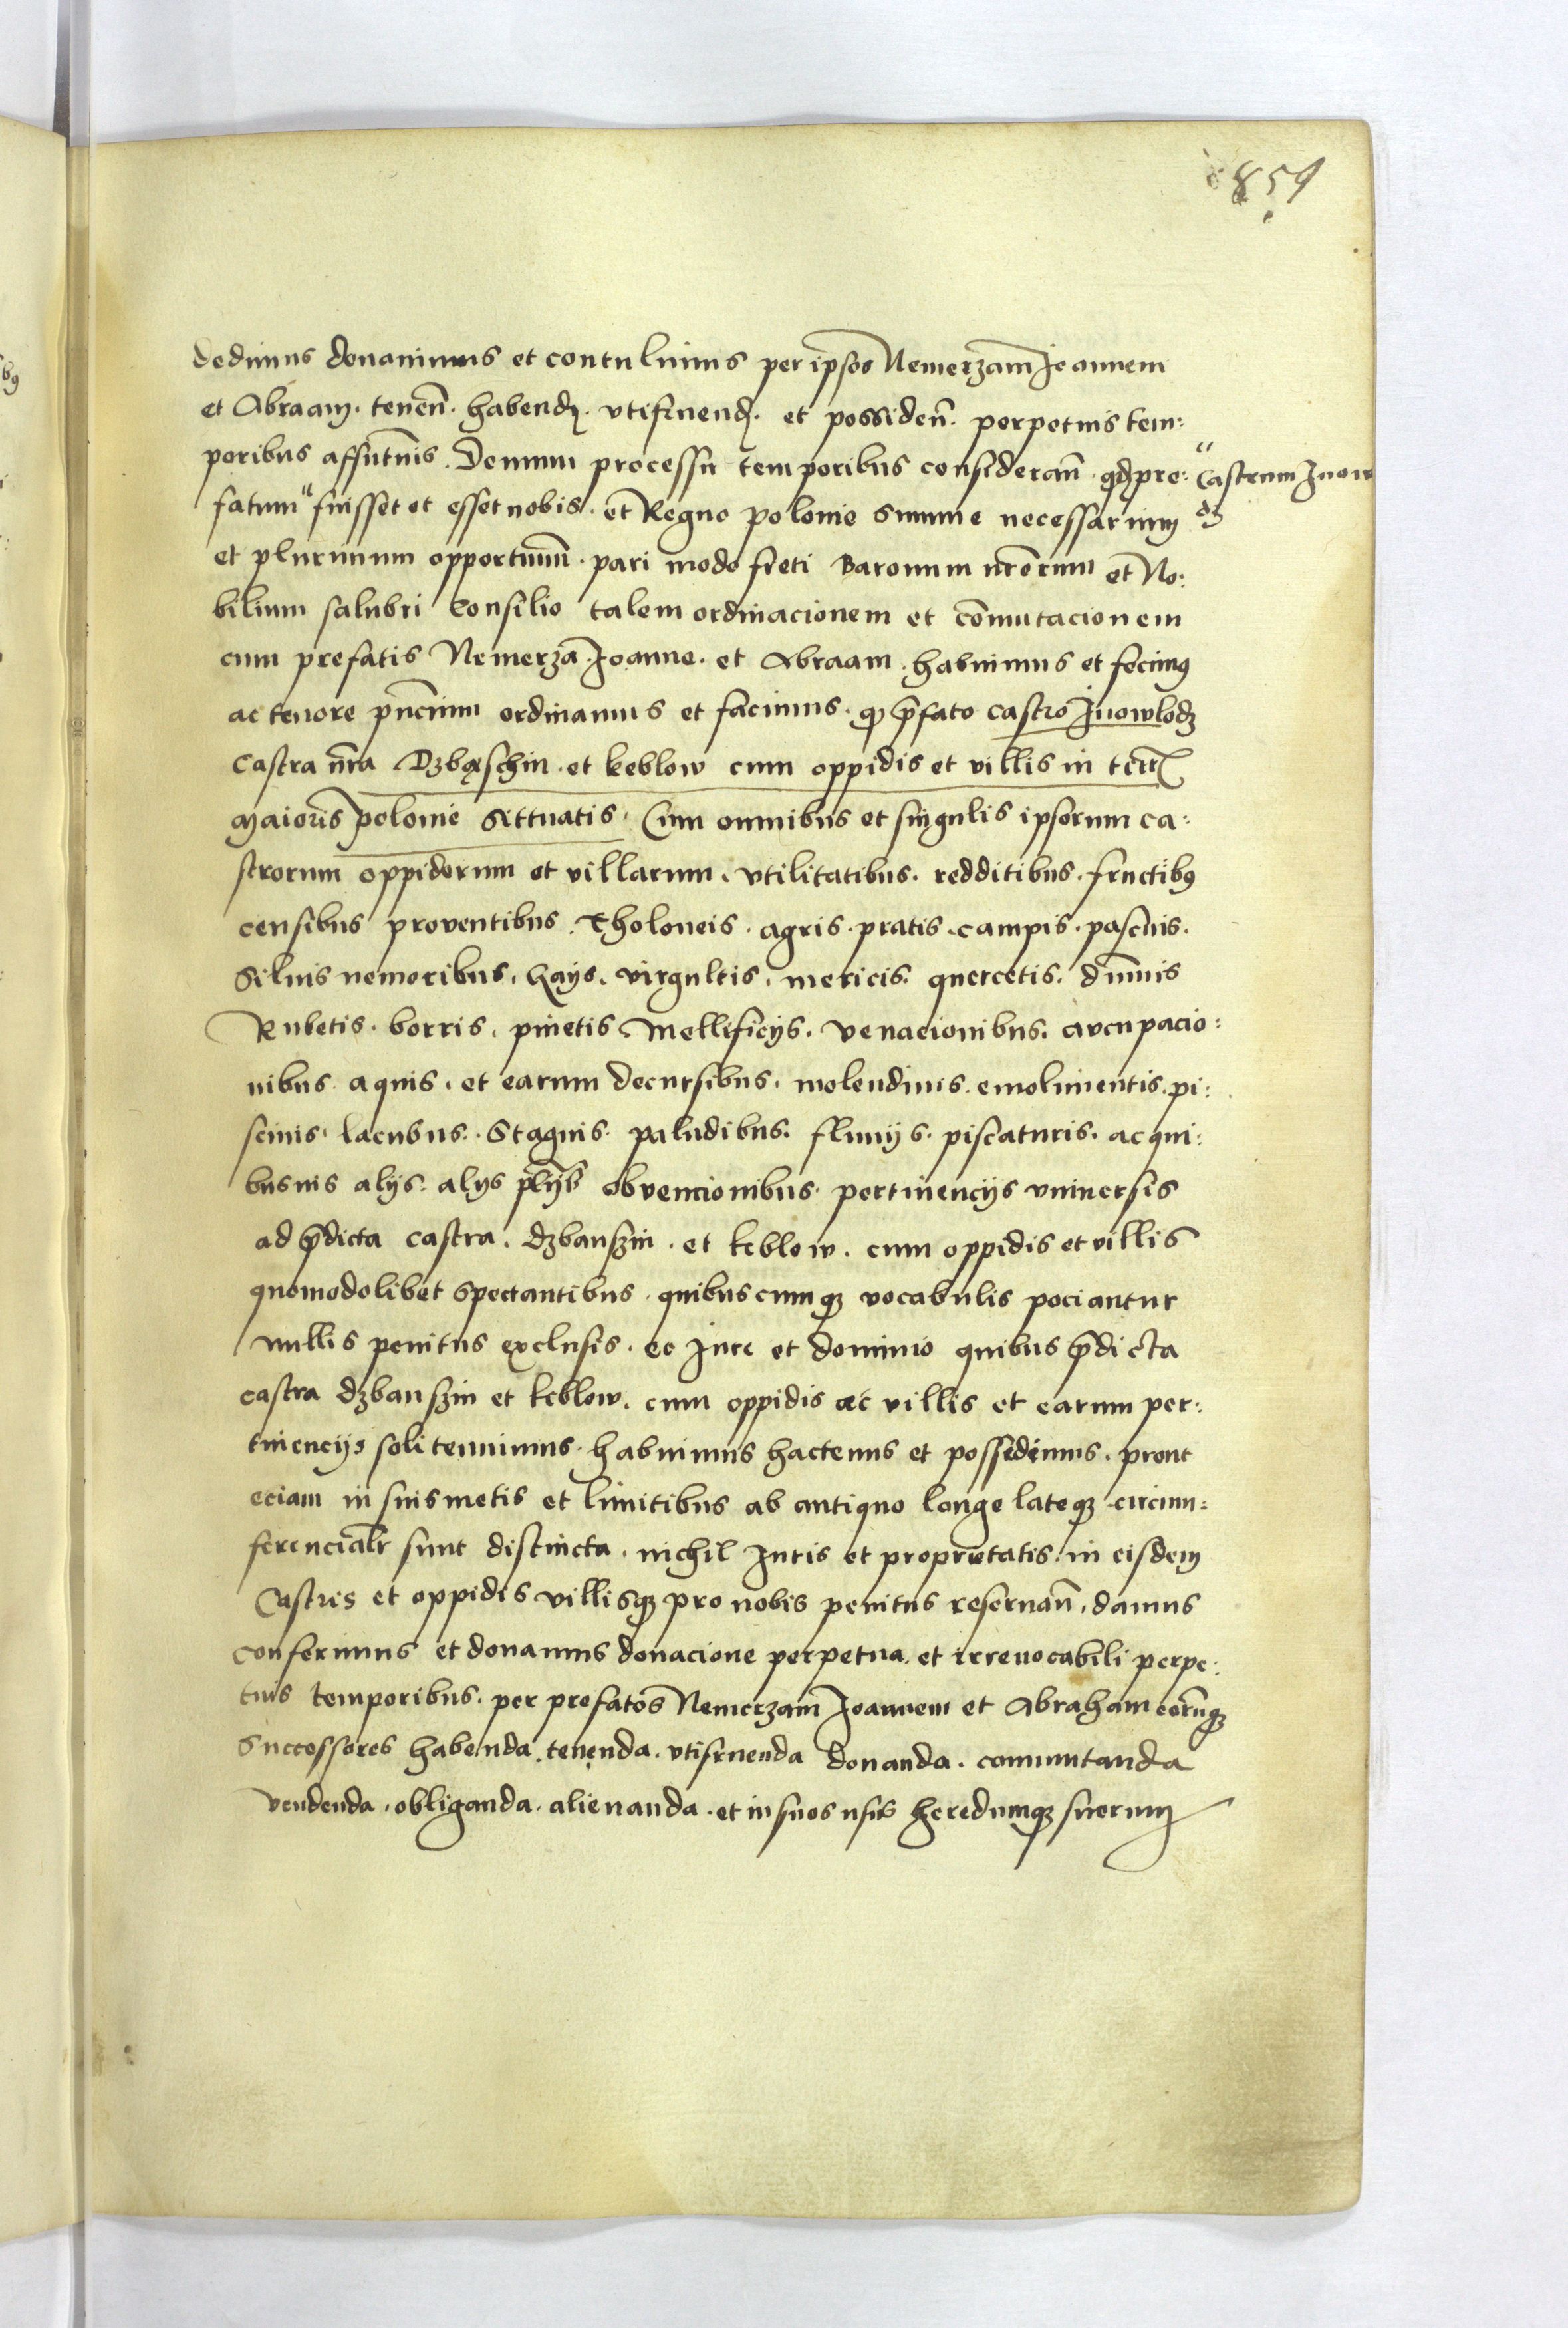 859
dedimus donauimus et contulimus per ip̄sos Nemerzam̄ Joannem
et Abraam. teneñ. habendꝭ. vtifruendꝭ. et possideñ. perpetuis tem:
poribus affuturis. Demum processu temporibus considerañ. qđ pre:
fatum “ fuisset et esset nobis. et Regno polonie summe necessarium
“ Castrum Jnow
dz
et plurimum opportunum̄. pari modo freti Baronum nr̄orum et No:
bilium salubri consilio talem ordinacionem et com̄utacionem
cum prefatis Nemerza. Joanne. et Abraam. habuimus et fecimꝰ
ac tenore pn̄cium ordinamus et facimus. qđ p̄fato castro Jnowlodz
Castra nr̄a Dzbąschin. et keblow cum oppidis et villis in terr̄
Maioris polonie sittuatis. Cum omnibus et singulis ipsorum ca:
strorum oppidorum et villarum. vtilitatibus. redditibus. fructibꝰ
censibus proventibus. Tholoneis. agris. pratis. campis. pascuis.
Siluis nemoribus. Gays. virgultis. mericis. quercetis. dumis
Rubetis. borris. pinetis. Mellificijs. venacionibus. aucupacio:
nibus. aquis. et earum decursibus. molendinis. emolimentis. pi:
scinis. lacubus. Stagnis. paludibus. fluuijs. piscaturis. ac qui:
busuis alijs. alijs obvencionibus. pertinencijs vniuersis
ad p̄dicta castra. dzbanszin. et keblow. cum oppidis et villis
quomodolibet spectantibus. quibuscumqꝫ vocabulis pociantur
nullis penitus exclusis. eo Jure et dominio quibus p̄dicta
castra dzbanszin et keblow. cum oppidis ac villis et earum per:
tinencijs soli tenuimus. habuimus hactenus et possedimus. prout
eciam in suis metis et limitibus ab antiquo longe lateqꝫ circum:
ferencialr̄ sunt distincta. nichil Juris et proprietatis. in eisdem
Castris et oppidis villisqꝫ pro nobis penitus reseruañ. damus
conferimus et donamus donacione perpetua. et irreuocabili perpe:
tuis temporibus. per prefatos Nemerzam̄ Joannem et Abraham eorūqꝫ
Successores habenda. tenenda. vtifruenda donanda. commutanda
vendenda. obliganda. alienanda. et in suos usus heredumqꝫ suorum